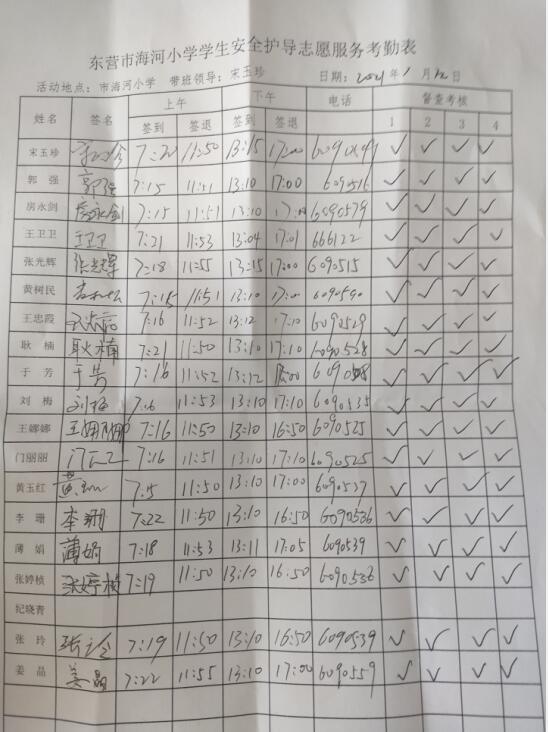 东营市海河小学学生安全护导志愿服务考勤表
活动地点：市海河小学 带班领导：宋玉珍 日期：2021年1月12日
姓名 签名 上午 下午 电话 督查考核
签到 签退 签到 签退 1 2 3 4
宋玉珍 7:20 11:50 13:15 17:00 ✓ ✓ ✓ ✓
郭强 郭强 7:15 11:51 13:10 17:00 ✓ ✓ ✓ ✓
房永剑 房永剑 7:15 11:51 13:10 17:00 6090579 ✓ ✓ ✓ ✓
王卫卫 王卫卫 7:21 11:53 13:04 17:01 666122 ✓ ✓ ✓ ✓
张光辉 张光辉 7:18 11:55 13:15 17:00 6090515 ✓ ✓ ✓ ✓
黄树民 7:15 11:51 13:10 17:00 6090590 ✓ ✓ ✓ ✓
王忠霞 7:16 11:52 13:12 17:10 6090529 ✓ ✓ ✓ ✓
耿楠 耿楠 7:21 11:50 13:10 17:10 6090528 ✓ ✓ ✓ ✓
于芳 于芳 7:16 11:52 13:12 17:00 ✓ ✓ ✓ ✓
刘梅 刘梅 11:53 13:10 17:10 6090535 ✓ ✓ ✓ ✓
王娜娜 王娜娜 7:16 11:50 13:10 16:50 6090525 ✓ ✓ ✓ ✓
门丽丽 7:16 11:51 13:10 17:10 6090525 ✓ ✓ ✓ ✓
黄玉红 11:50 13:10 17:00 6090537 ✓ ✓ ✓ ✓
李珊 李珊 7:22 11:50 13:10 16:50 6090536 ✓ ✓ ✓ ✓
薄娟 薄娟 7:18 11:53 13:11 17:05 6090539 ✓ ✓ ✓ ✓
张婷桢 张婷桢 7:19 11:50 13:10 16:50 6090536 ✓ ✓ ✓ ✓
纪晓青
张玲 张玲 7:19 11:50 13:10 16:50 6090539 ✓ ✓ ✓ ✓
姜晶 姜晶 7:22 11:55 13:10 17:00 6090559 ✓ ✓ ✓ ✓